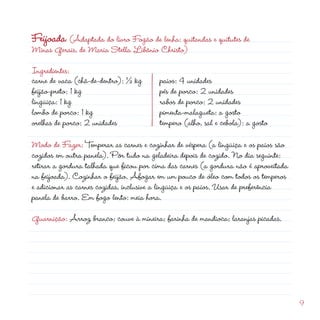 Feijoada (Adaptada do livro Fogão de lenha: quitandas e quitutes de
Minas Gerais, de Maria Stella Libânio Christo)
Ingredientes:
carne de vaca (chã-de-dentro): ½ kg
feijão-preto: 1 kg
lingüiça: 1 kg
lombo de porco: 1 kg
orelhas de porco: 2 unidades
paios: 4 unidades
pés de porco: 2 unidades
rabos de porco: 2 unidades
pimenta-malagueta: a gosto
tempero (alho, sal e cebola): a gosto
Modo de Fazer: Temperar as carnes e cozinhar de véspera (a lingüiça e os paios são
cozidos em outra panela). Pôr tudo na geladeira depois de cozido. No dia seguinte:
retirar a gordura talhada que ficou por cima das carnes (a gordura não é aproveitada
na feijoada). Cozinhar o feijão. Afogar em um pouco de óleo com todos os temperos
e adicionar as carnes cozidas, inclusive a lingüiça e os paios. Usar de preferência
panela de barro. Em fogo lento: meia hora.
Guarnição: Arroz branco; couve à mineira; farinha de mandioca; laranjas picadas.
9